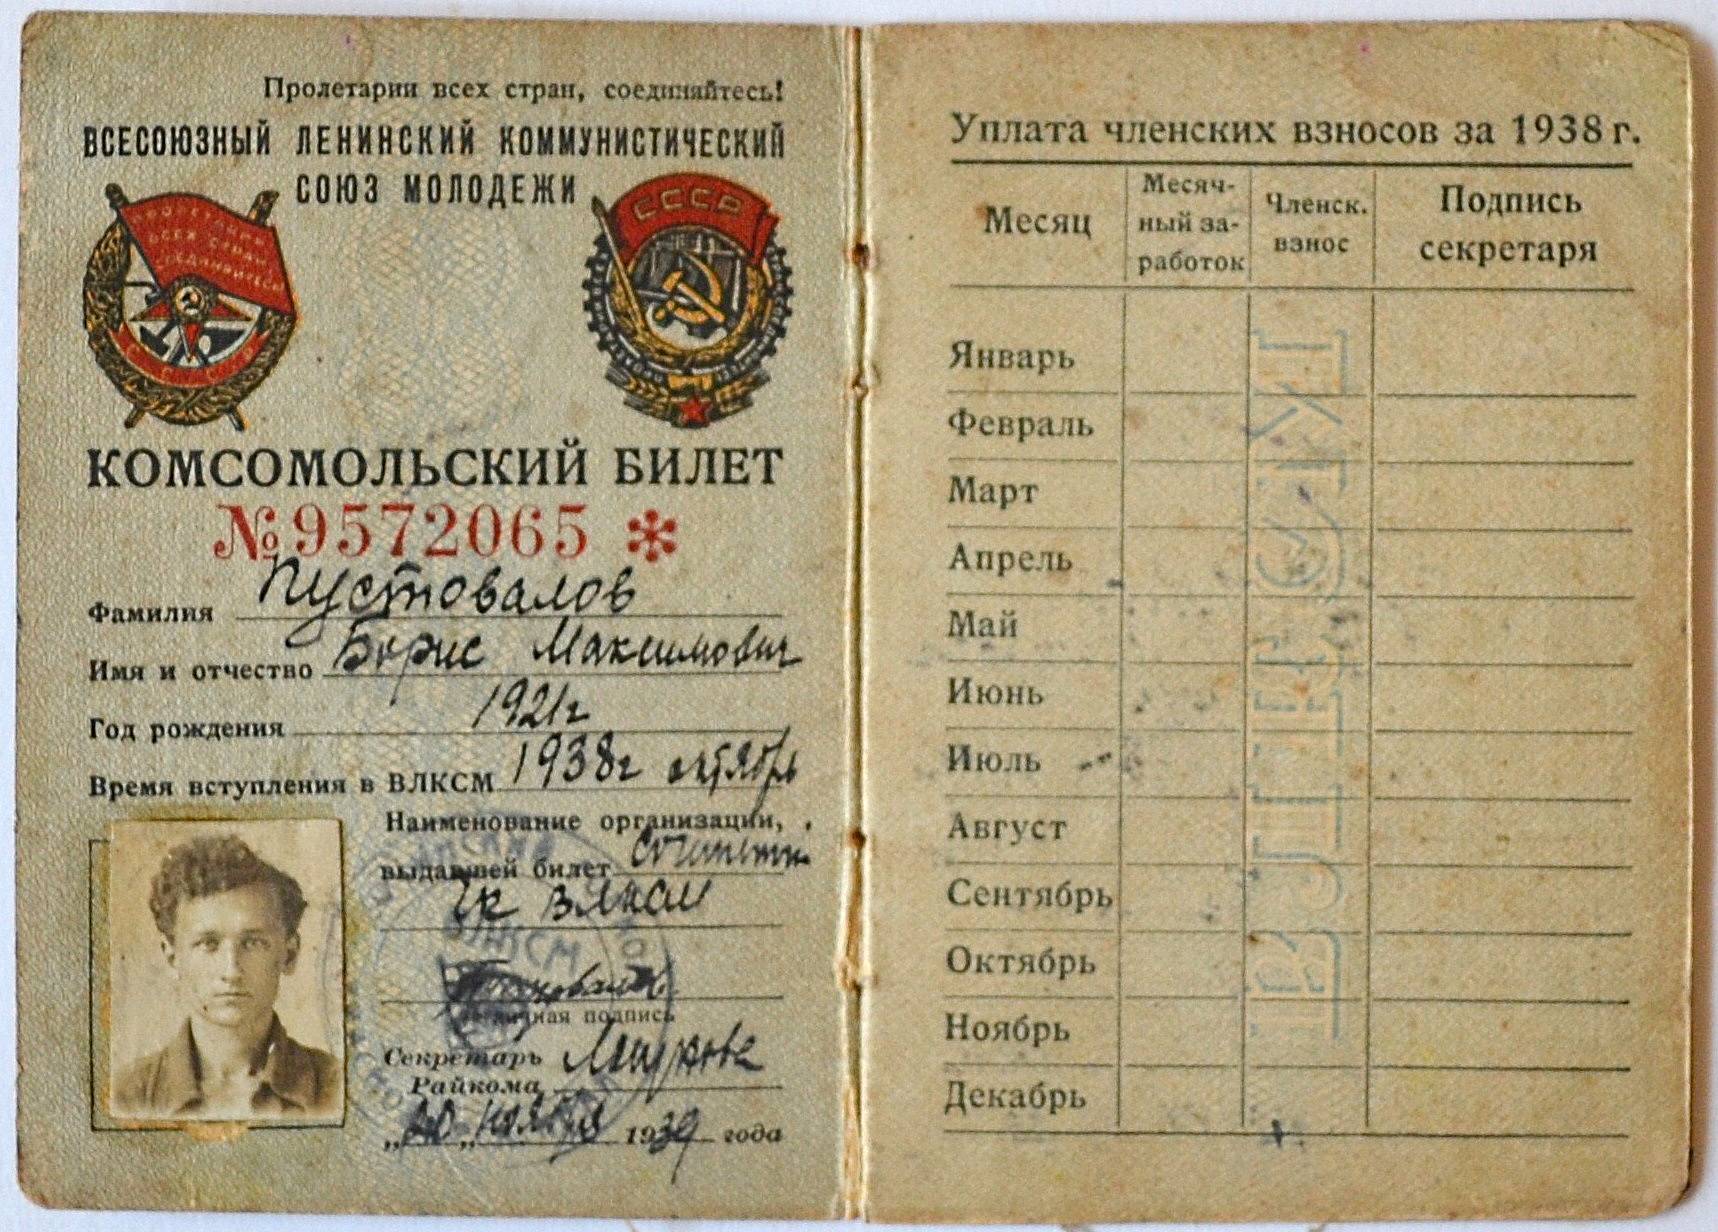 Пролетарии всех стран, соединяйтесь!
ВСЕСОЮЗНЫЙ ЛЕНИНСКИЙ КОММУНИСТИЧЕСКИЙ
СОЮЗ МОЛОДЕЖИ
СССР
КОМСОМОЛЬСКИЙ БИЛЕТ
№ 9572065 *
Фамилия Пустовалов
Имя и отчество Борис Максимович
Год рождения 1921 г
Время вступления в ВЛКСМ 1938 г октябрь
Наименование организации,
выдавшей билет
ВЛКСМ
ВЛКСМ
Личная подпись
Секретарь
Райкома
„20" ноября 1939 года
Уплата членских взносов за 1938 г.
Месяц
Месяч-
ный за-
работок
Членск.
взнос
Подпись
секретаря
Январь
Февраль
Март
Апрель
Май
Июнь
Июль
Август
Сентябрь
Октябрь
Ноябрь
Декабрь